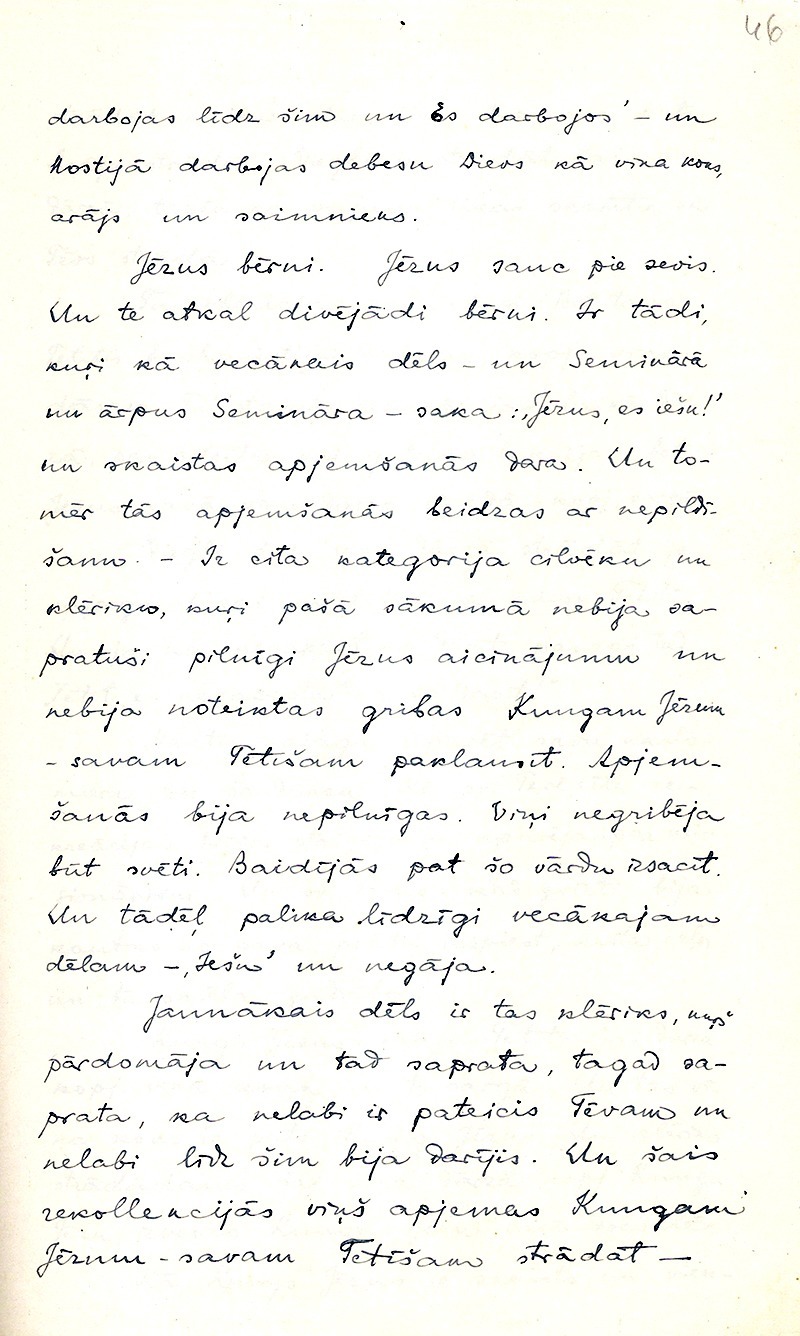 46
darbojas līdz šim un Es darbojos' – un
Hostijā darbojas debesu Dievs kā vīna koks,
arājs un saimnieks.
Jēzus bērni. Jēzus sauc pie sevis.
Un te atkal divējādi bērni. Ir tādi,
kuŗi kā vecākais dēls – un Seminārā
un ārpus Semināra – saka: ‚Jēzus, es iešu!'
un skaistas apjemšanās dara. Un to-
mēr tās apjemšanās beidzas ar nepildī-
šanu. – Ir cita kategorija cilvēku un
klēriku, kuŗi pašā sākumā nebija sa-
pratuši pilnīgi Jēzus aicinājumu un
nebija noteiktas gribas Kungam Jēzum
– savam Tētišam paklausīt. Apjem-
šanās bija nepilnīgas. Viņi negribēja
būt svēti. Baidījās pat šo vārdu izsacīt.
Un tādēļ palika līdzīgi vecākajam
dēlam – ‚Iešu' un negāja.
Jaunākais dēls ir tas klēriks, kuŗš
pārdomāja un tad saprata, tagad sa-
prata, ka nelabi ir pateicis Tēvam un
nelabi līdz šim bija darījis. Un šais
rekollekcijās viņš apjemas Kungam
Jēzum – savam Tētišam strādāt –